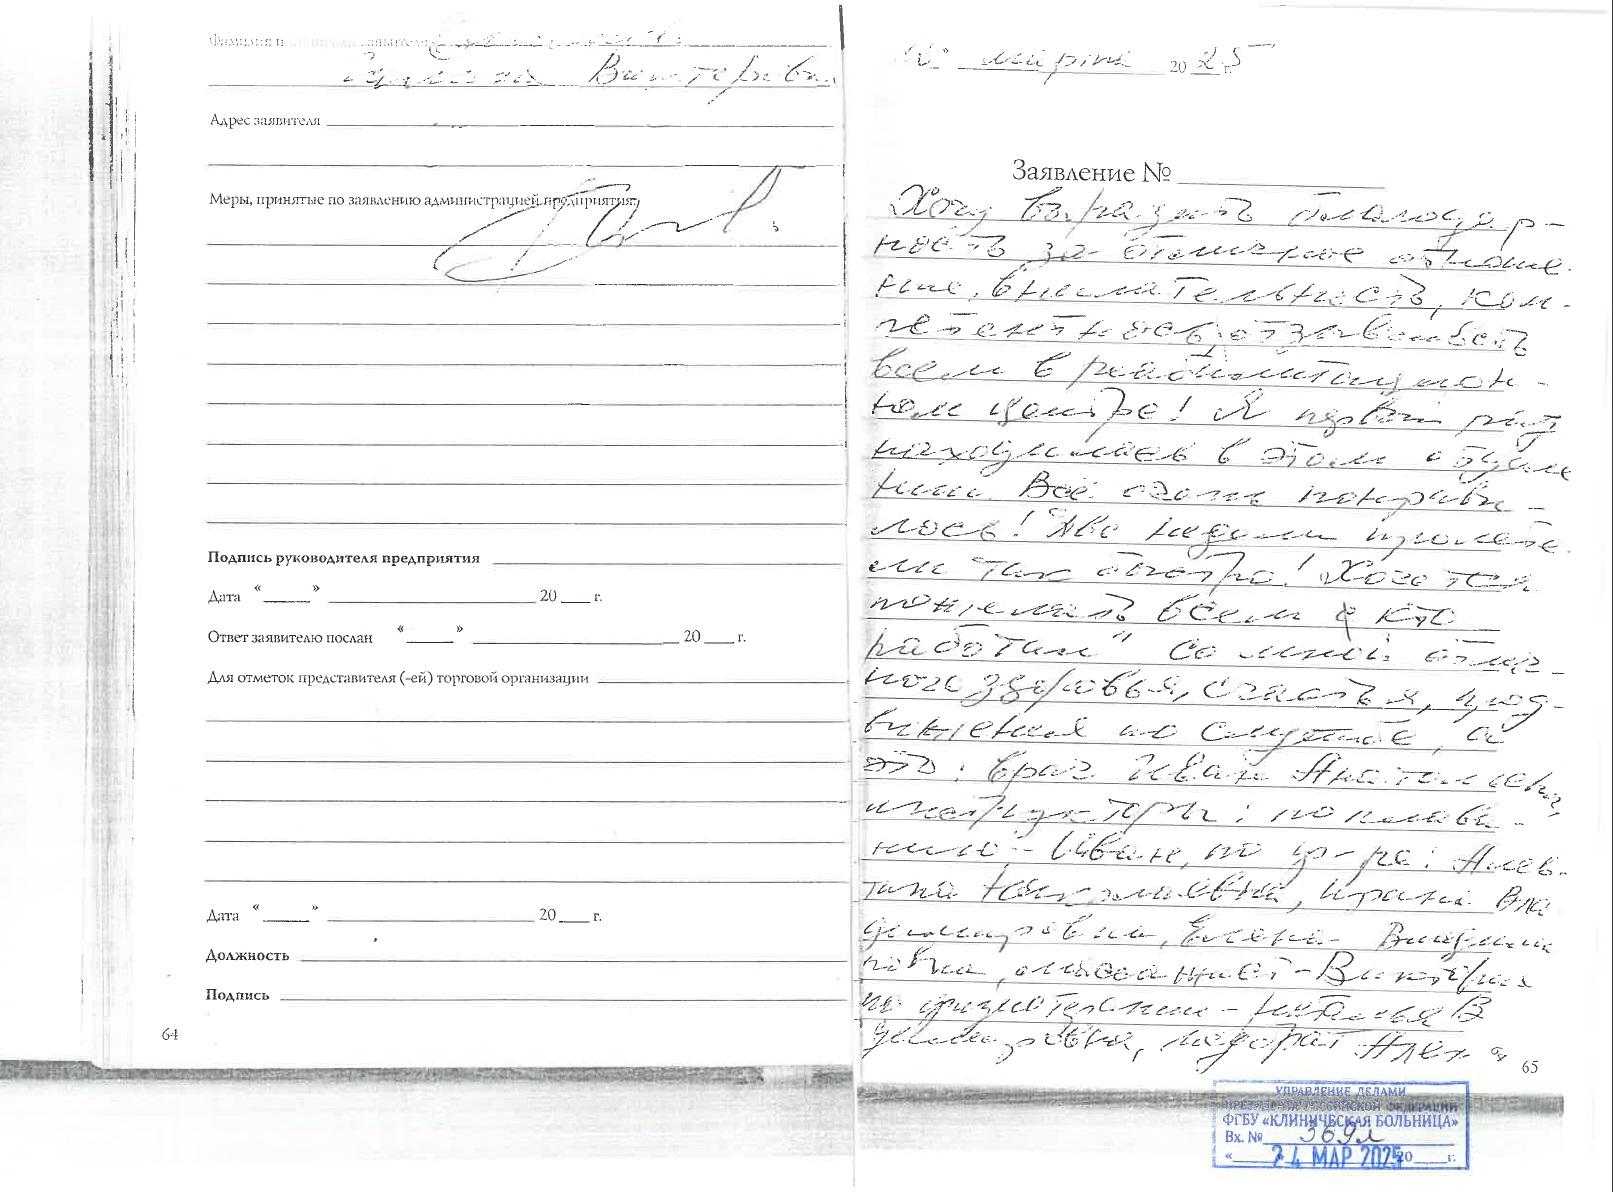 Фамилия заявителя
Викторовна
Адрес заявителя
Меры, принятые по заявлению администрацией предприятия:
Подпись руководителя предприятия
Дата « » 20 г.
Ответ заявителю послан « » 20 г.
Для отметок представителя (-ей) торговой организации
Дата « » 20 г.
Должность
Подпись
64
марта 2025
Заявление №
Хочу выразить благодар-
ность за отличное отноше-
ние, внимательность, ком-
петентность, отзывчивость
всем в реабилитацион-
ном центре! Я первый раз
находилась в этом отделе
нии. Всё очень понрави-
лось! Две недели пролете-
ли так быстро! Хочется
пожелать всем кто
работал со мной: отлич-
ного здоровья, счастья, прод-
вижения по службе, а
это: врач Иван Анатольевич,
инструкторы: по плава-
нию - Иван, по ф-ре: Алев-
тина Николаевна, Ирина Вла
димировна, Елена Владими
ровна, массажист - Виктория
по физиотерапии - Наталья В
димировна, медбрат Алек
65
УПРАВЛЕНИЕ ДЕЛАМИ
ПРЕЗИДЕНТА РОССИЙСКОЙ ФЕДЕРАЦИИ
ФГБУ «КЛИНИЧЕСКАЯ БОЛЬНИЦА»
Вх. № 369л
« 24 МАР 2025 20 г.